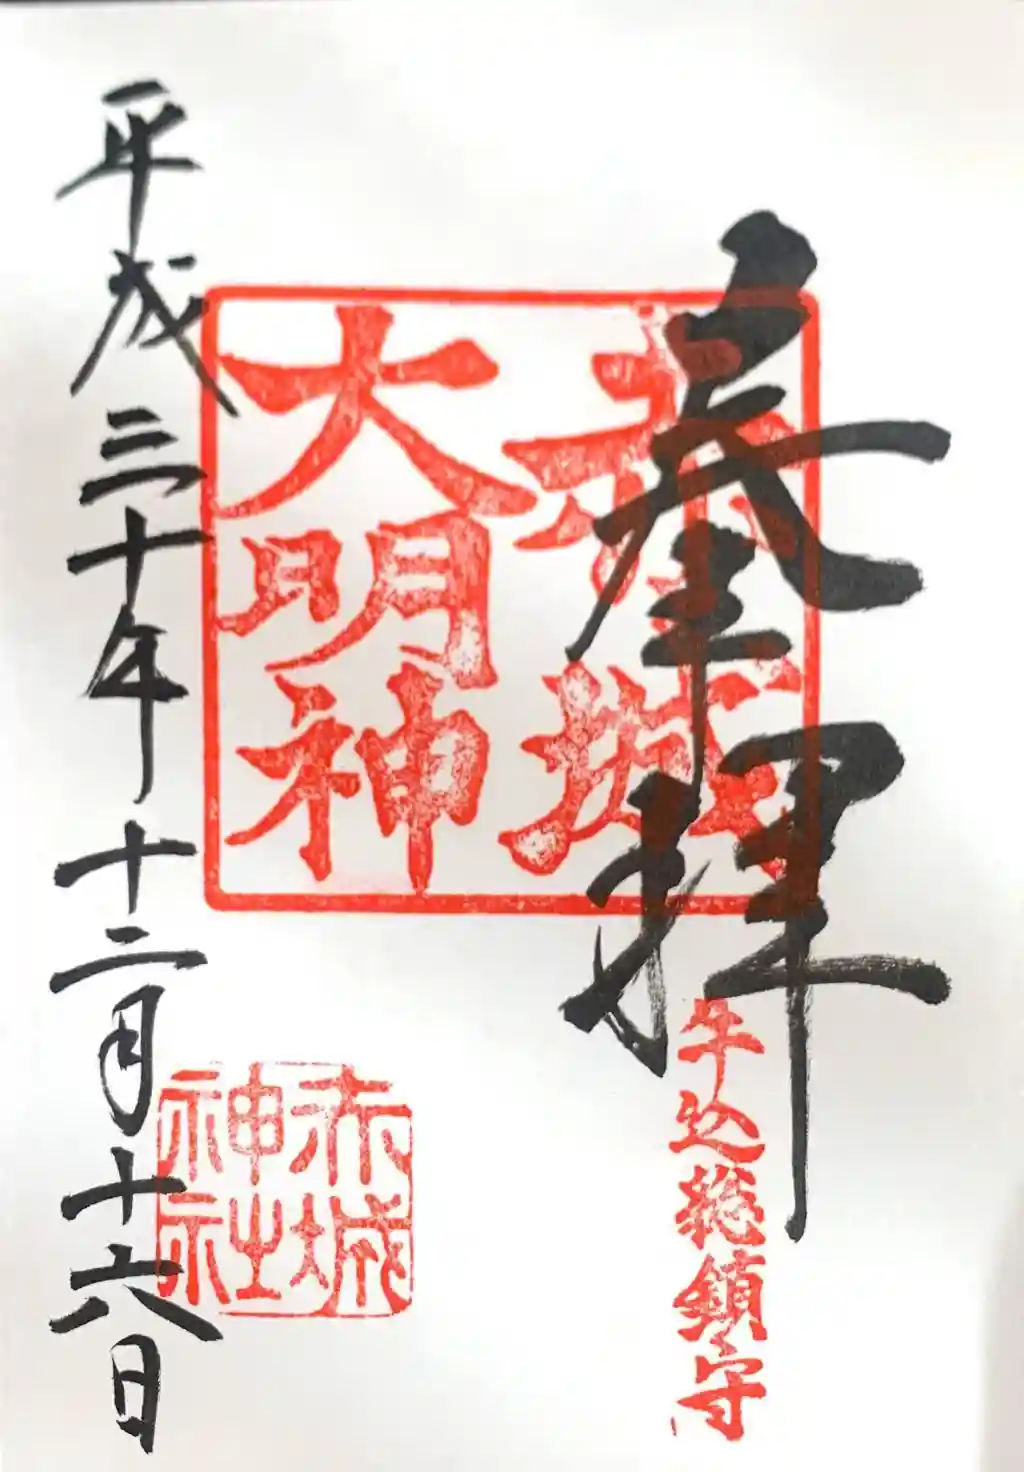 奉拝
牛込総鎮守
赤城
大明神
赤城
神社
平成三十年十二月十六日